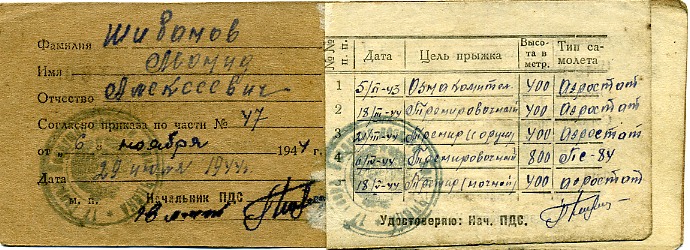 Фамилия Шибанов
Имя Леонид
Отчество Алексеевич
Согласно приказа по части № 47
от „6" ноября 1944 г.
Дата 29 июня 1944 г.
м. п. Начальник ПДС
№ № п. п. Дата Цель прыжка Высота в метр. Тип самолета
1 5/VI-43 Ознакомител 400 Аэростат
2 18/VI-44 Тренировочный 400 Аэростат
3 Тренир (с оруж) 400 Аэростат
4 Тренировочный 800
18 Тренир (ночной) 400 аэростат
Удостоверяю: Нач. ПДС.